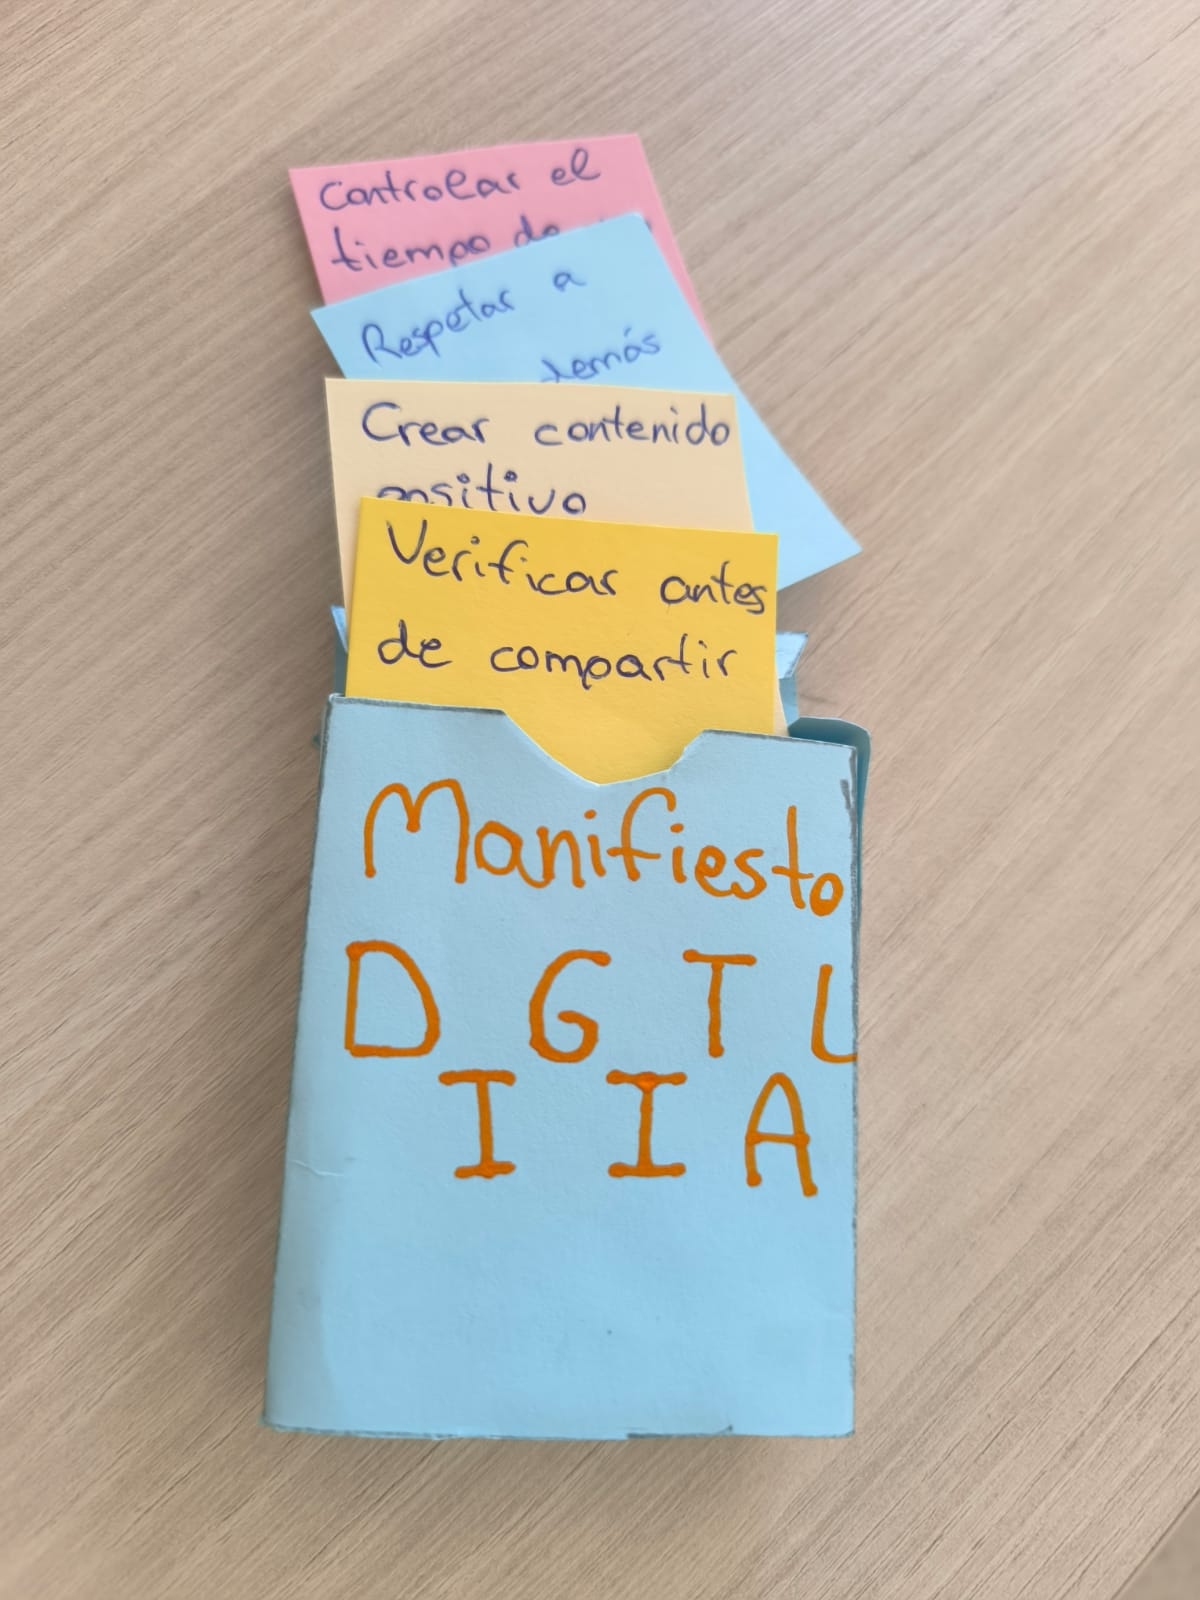 Controlar el
tiempo de
Respetar a
demás
Crear contenido
positivo
Verificar antes
de compartir
Manifiesto
D G T L
I I A